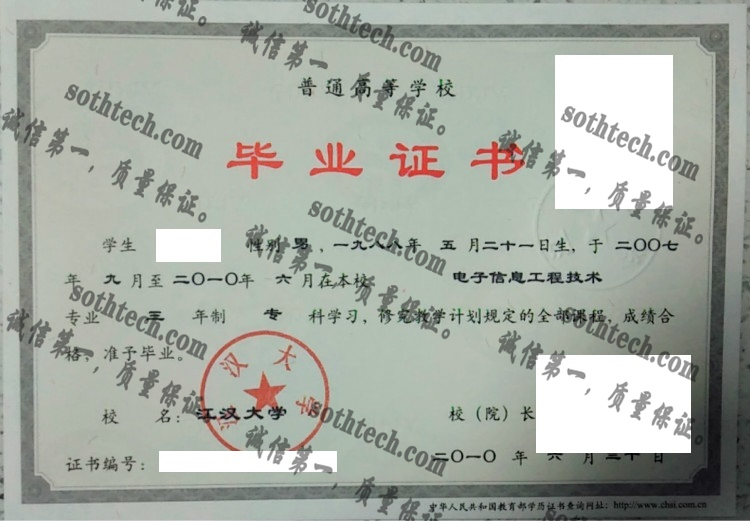 普通高等学校
毕业证书
学生 性别 男，一九八八年 五 月二十一日生，于 二〇〇七
年 九 月至 二〇一〇年 六 月在本校 电子信息工程技术
专业 三 年制 专 科学习，修完教学计划规定的全部课程，成绩合
格，准予毕业。
校 名：江汉大学 校（院）长
江汉大学
证书编号： 二〇一〇 年 六 月 三十 日
中华人民共和国教育部学历证书查询网址：http://www.chsi.com.cn
sothtech.com
诚信第一，质量保证。
sothtech.com
诚信第一，质量保证。
sothtech.com
诚信第一，质量保证。
sothtech.com
诚信第一，质量保证。
sothtech.com
诚信第一，质量保证。
sothtech.com
诚信第一，质量保证。
sothtech.com
诚信第一，质量保证。